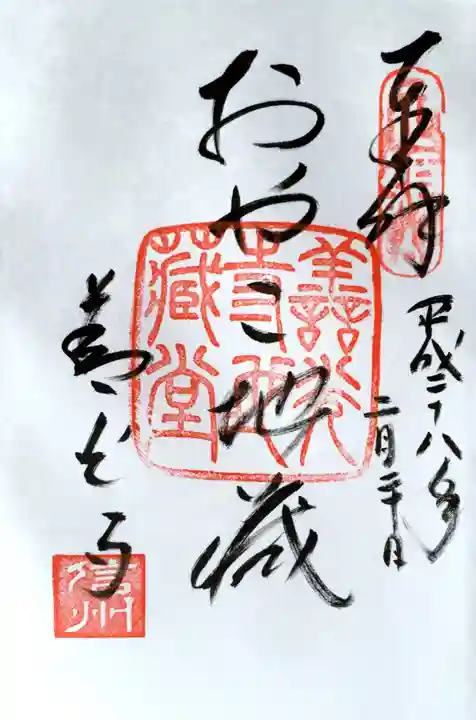 奉拝
平成二十八年
二月二十日
おやこ地蔵
善光寺
善光寺地藏堂
信州